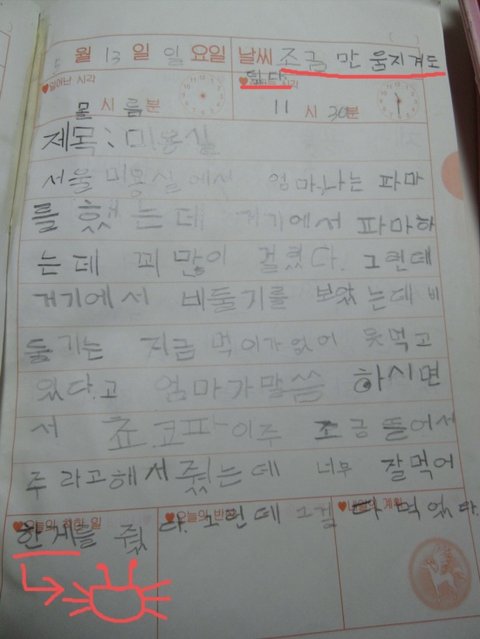 5 월 13 일 일 요일 날씨 조금 만 움지겨도
덥다
♥일어난 시각 시각
몰 시 름 분 11 시 30 분
제목 : 미용실
서울 미용실에서 엄마,나는 파마
를 했는데 거기에서 파마하
는데 꾀 많이 걸렸다. 그런데
거기에서 비둘기를 보았는데 비
둘기는 지금 먹이가없어 못먹고
있다.고 엄마가말씀 하시면
서 쵸.코파이주 조금 뜰어서
주라고해서줬는데 너무 잘먹어
♥오늘의 착한 일 ♥오늘의 반성 ♥내일의 계획
한개를 줬다. 그런데 그걸 다 먹었다.